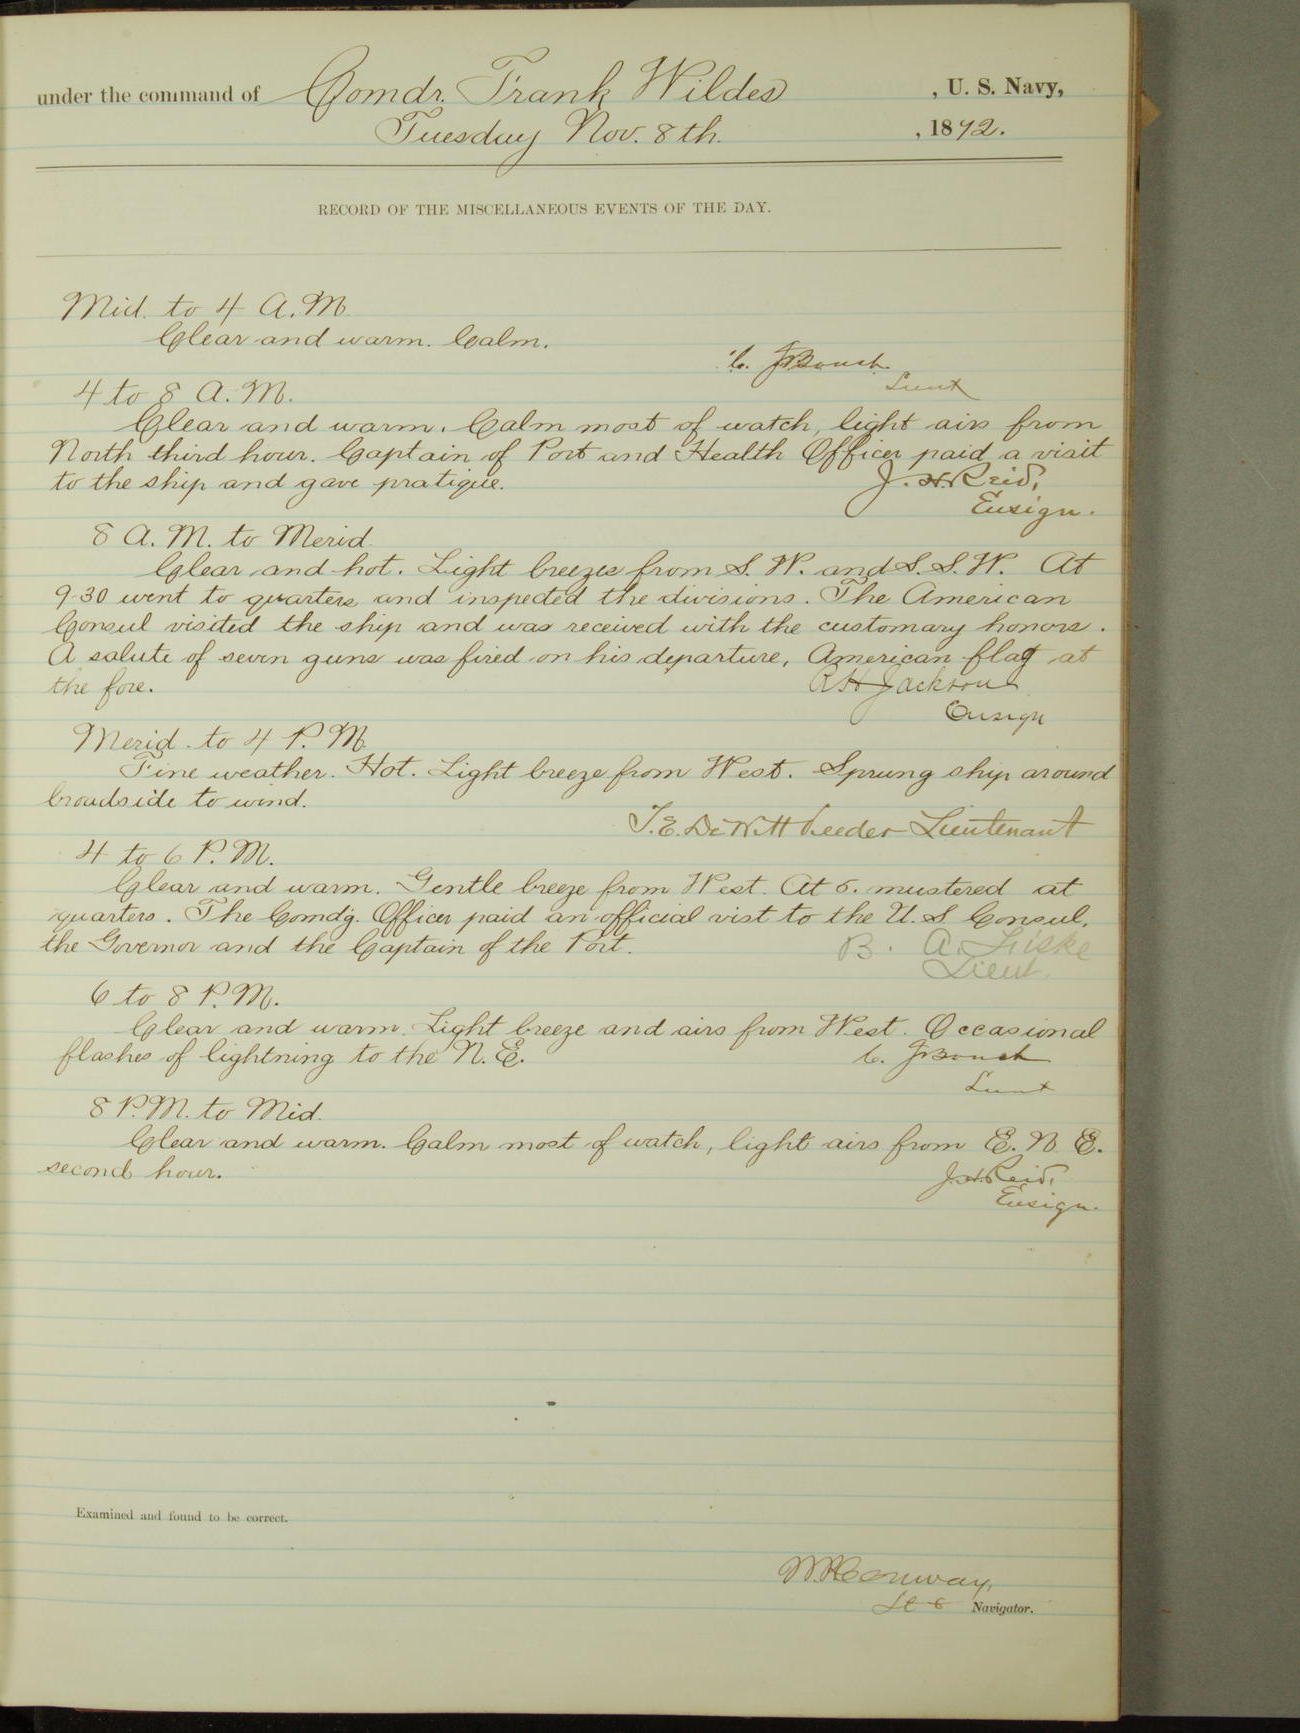 under the command of Comdr. Frank Wildes, U. S. Navy,
Tuesday Nov. 8th. , 1892.
RECORD OF THE MISCELLANEOUS EVENTS OF THE DAY.
Mid. to 4 A.M.
Clear and warm. Calm.
C.
Lieut
4 to 8 A.M.
Clear and warm. Calm most of watch, light airs from
North third hour. Captain of Port and Health Officer paid a visit
to the ship and gave pratique.
J. H. Reid,
Ensign.
8 A.M. to Merid.
Clear and hot. Light breezes from S. W. and S. S. W. At
9-30 went to quarters and inspected the divisions. The American
Consul visited the ship and was received with the customary honors.
A salute of seven guns was fired on his departure, American flag at
the fore.
R H Jackson
Ensign
Merid. to 4 P.M.
Fine weather. Hot. Light breeze from West. Sprung ship around
broadside to wind.
T. E. DeWitt Veeder Lieutenant
4 to 6 P.M.
Clear and warm. Gentle breeze from West. At 5. mustered at
quarters. The Comd'g. Officer paid an official vist to the U. S. Consul,
the Governor and the Captain of the Port.
B. A. Fiske
Lieut.
6 to 8 P.M.
Clear and warm. Light breeze and airs from West. Occasional
flashes of lightning to the N. E.
C.
Lieut
8 P.M. to Mid.
Clear and warm. Calm most of watch, light airs from E. N. E.
second hour.
J. H. Reid,
Ensign.
Examined and found to be correct.
W. P. Conway,
Lt & Navigator.